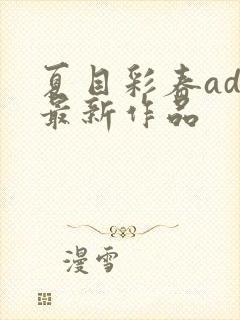 夏目彩春ad
最新作品
漫雪